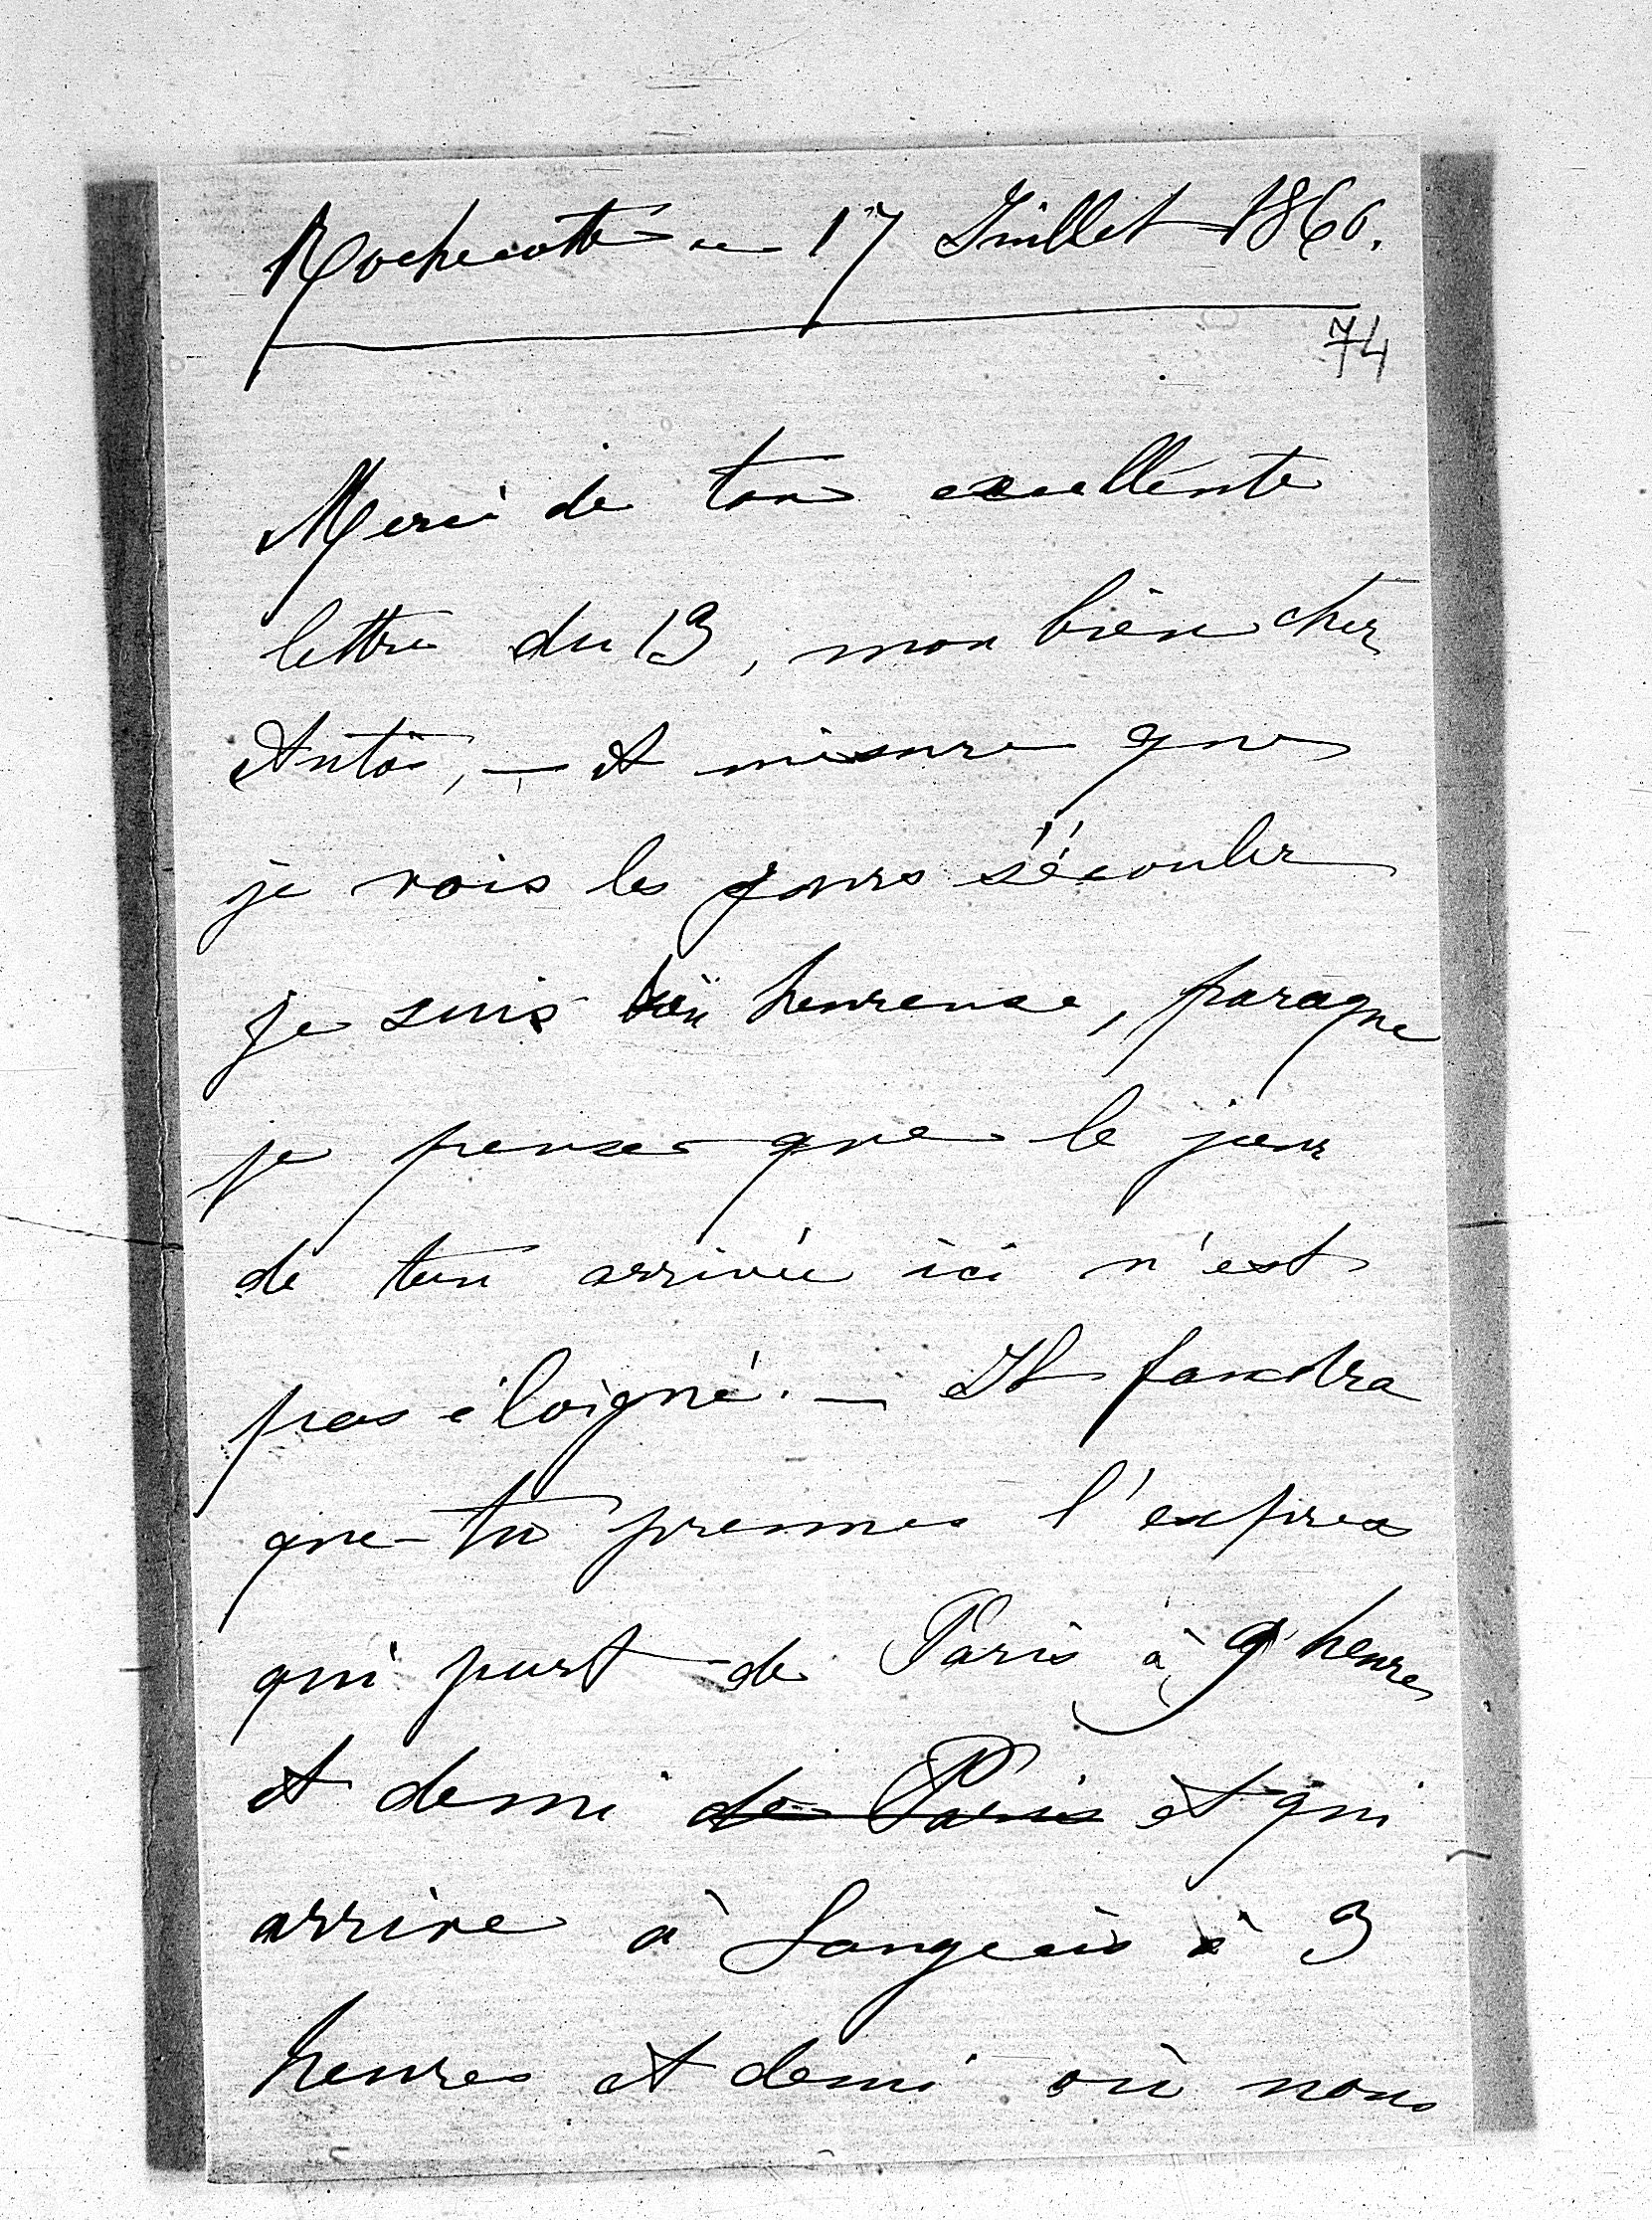 Rochecotte ce 17 Juillet 1860.
74
Merci de ton excellente
lettre du 13, mon bien cher
Antôs, — A mesure que
je vois les jours s'écouler
je suis bien heureuse, paraque
je pense que le jour
de ton arrivée ici n'est
pas éloigné. — Il faudra
que tu prennes l'express
qui part de Paris à 9 heures
et demi de Paris et qui
arrive à Langeais à 3
heures et demi où nous